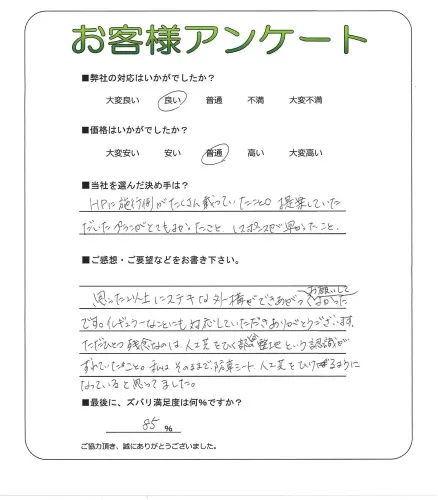 お客様アンケート
■弊社の対応はいかがでしたか？
大変良い 良い 普通 不満 大変不満
■価格はいかがでしたか？
大変安い 安い 普通 高い 大変高い
■当社を選んだ決め手は？
HPに施行例がたくさん載っていたこと。提案していた
だいたプランがとてもよかったこと レスポンスが早かったこと。
■ご感想・ご要望などをお書き下さい。
お願いして
思った以上にステキな外構ができあがって よかった
です。イレギュラーなことにも対応していただきありがとうございます。
ただひとつ残念なのは、人工芝をひく部分 整地という認識が
ずれていたこと。私は そのままで防草シート、人工芝をひけるように
なっていると思ってました。
■最後に、ズバリ満足度は何%ですか？
85 %
ご協力頂き、誠にありがとうございました。